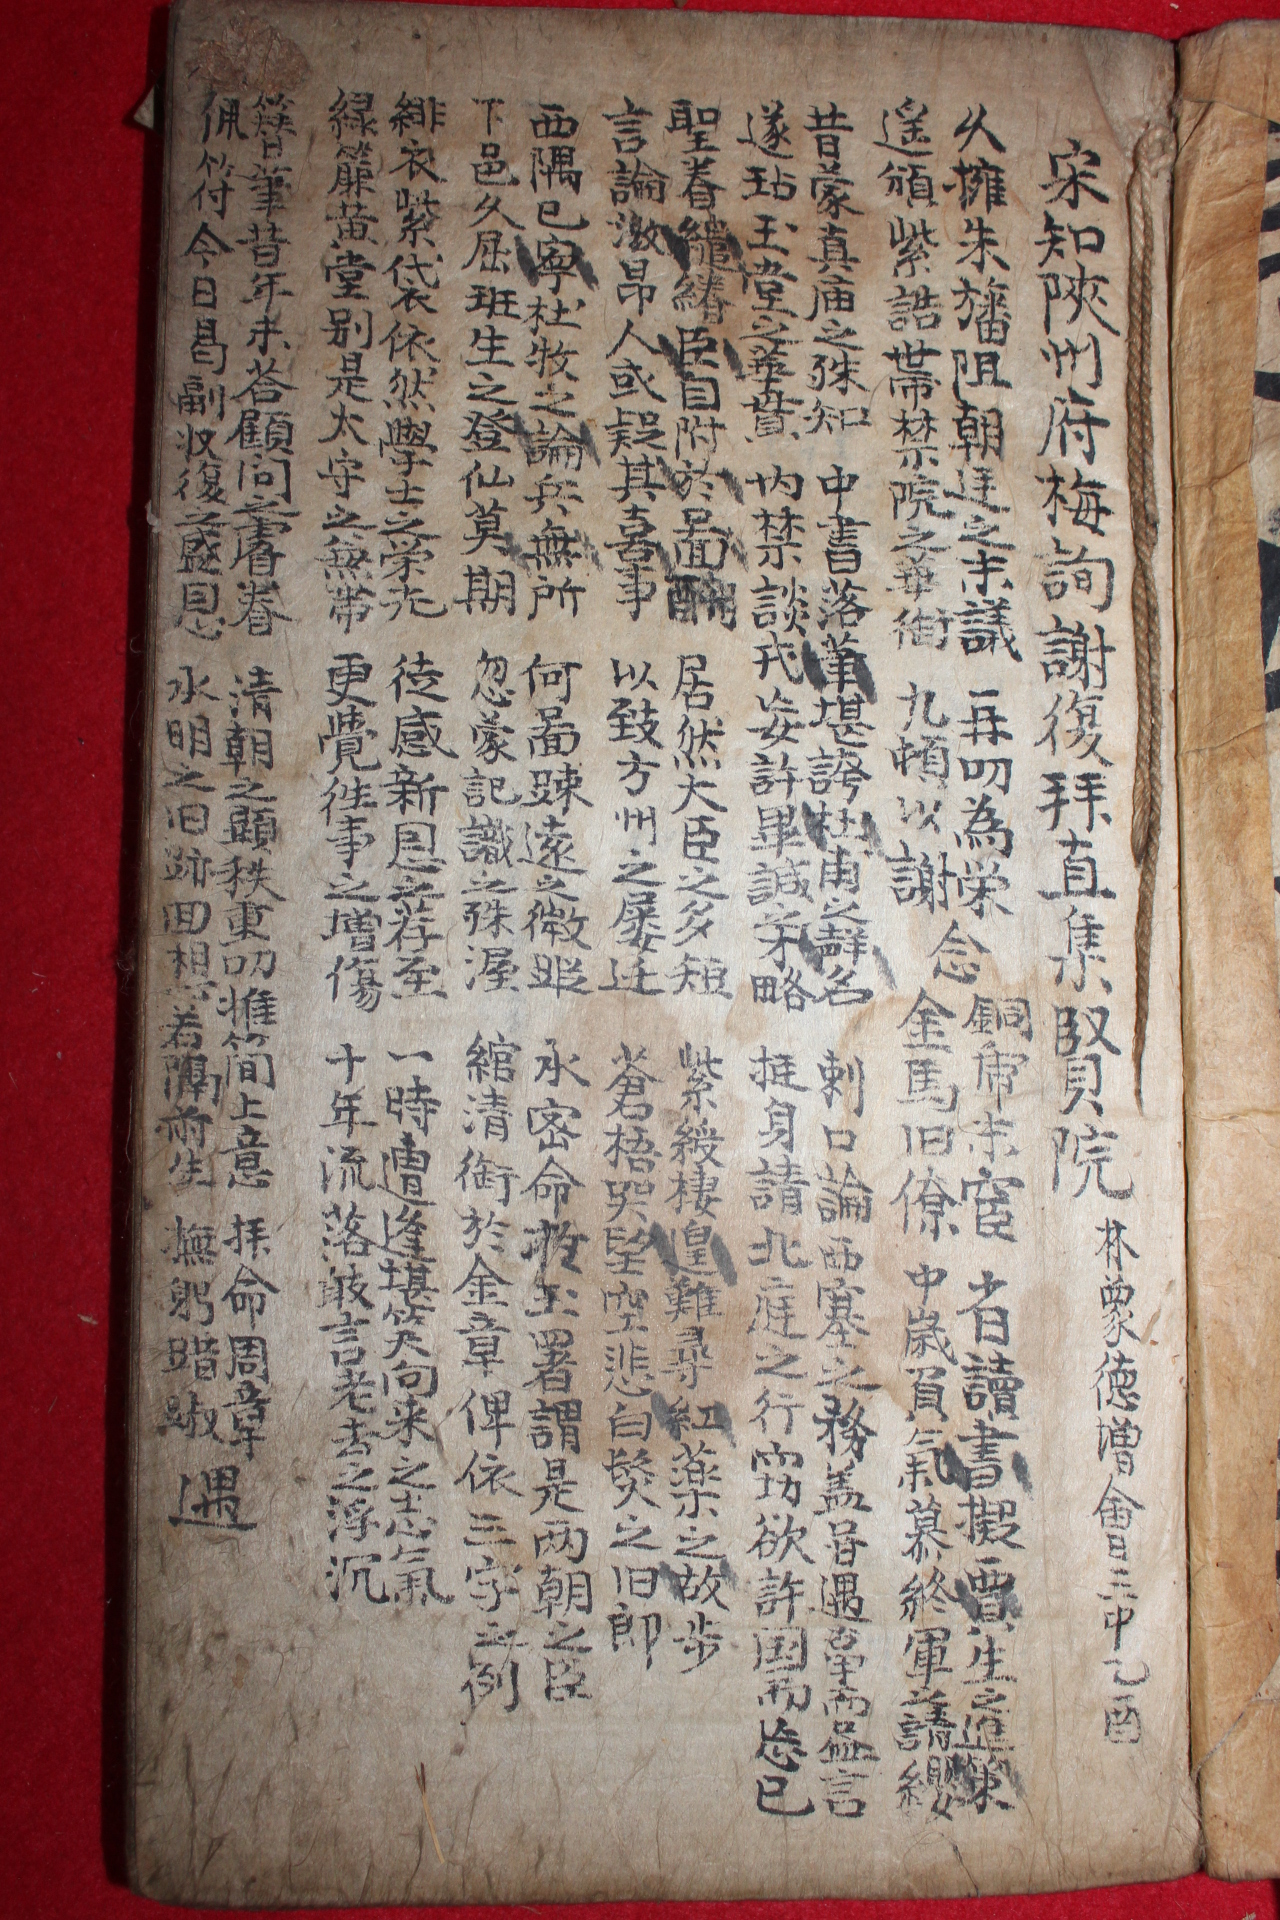 宋知陝州府梅詢謝復拜直集賢院 林象德增會三中乙酉
久擁朱藩阻朝廷之末議 再叨為栄 念 銅席末宦 省讀書擬賈生之進策
遥頒紫誥世帶禁院之華銜 九頓以謝 金馬旧僚 中歲負氣慕終軍之請纓
昔蒙真庙之殊知 中書落筆堪誇杜甫之辭名 刺口論西塞之務盖昔遇而益言
遂玷玉堂之華貫 内禁談戎妄許畢諴之才略 挺身請北庭之行窃欲許国而忘已
聖眷繾綣臣自附於啚酬 居然大臣之多短 紫綬棲皇難尋紅薬之故步
言論激昂人或疑其喜事 以致方州之屡迁 蒼梧哭望空悲白髮之旧郎
西隅已寧杜牧之論兵無所 何啚踈遠之微 承密命於玉署謂是两朝之臣
下邑久屈班生之登仙莫期 忽蒙記識之殊渥 綰清銜於金章俾依三字之例
緋衣紫袋依然學士之栄光 徒感新恩之荐至 一時遭逢堪笑向来之志氣
緑簾黄堂别是太守之無帶 更覺徃事之增傷 十年流落敢言老去之浮沉
簪筆昔年未荅顧問之睿眷 清朝之顯秩重叨惟簡上意 拝命周章
佩符今日曷副收復之盛恩 氷明之旧跡回想若隔前生 撫躬踖踧 遇